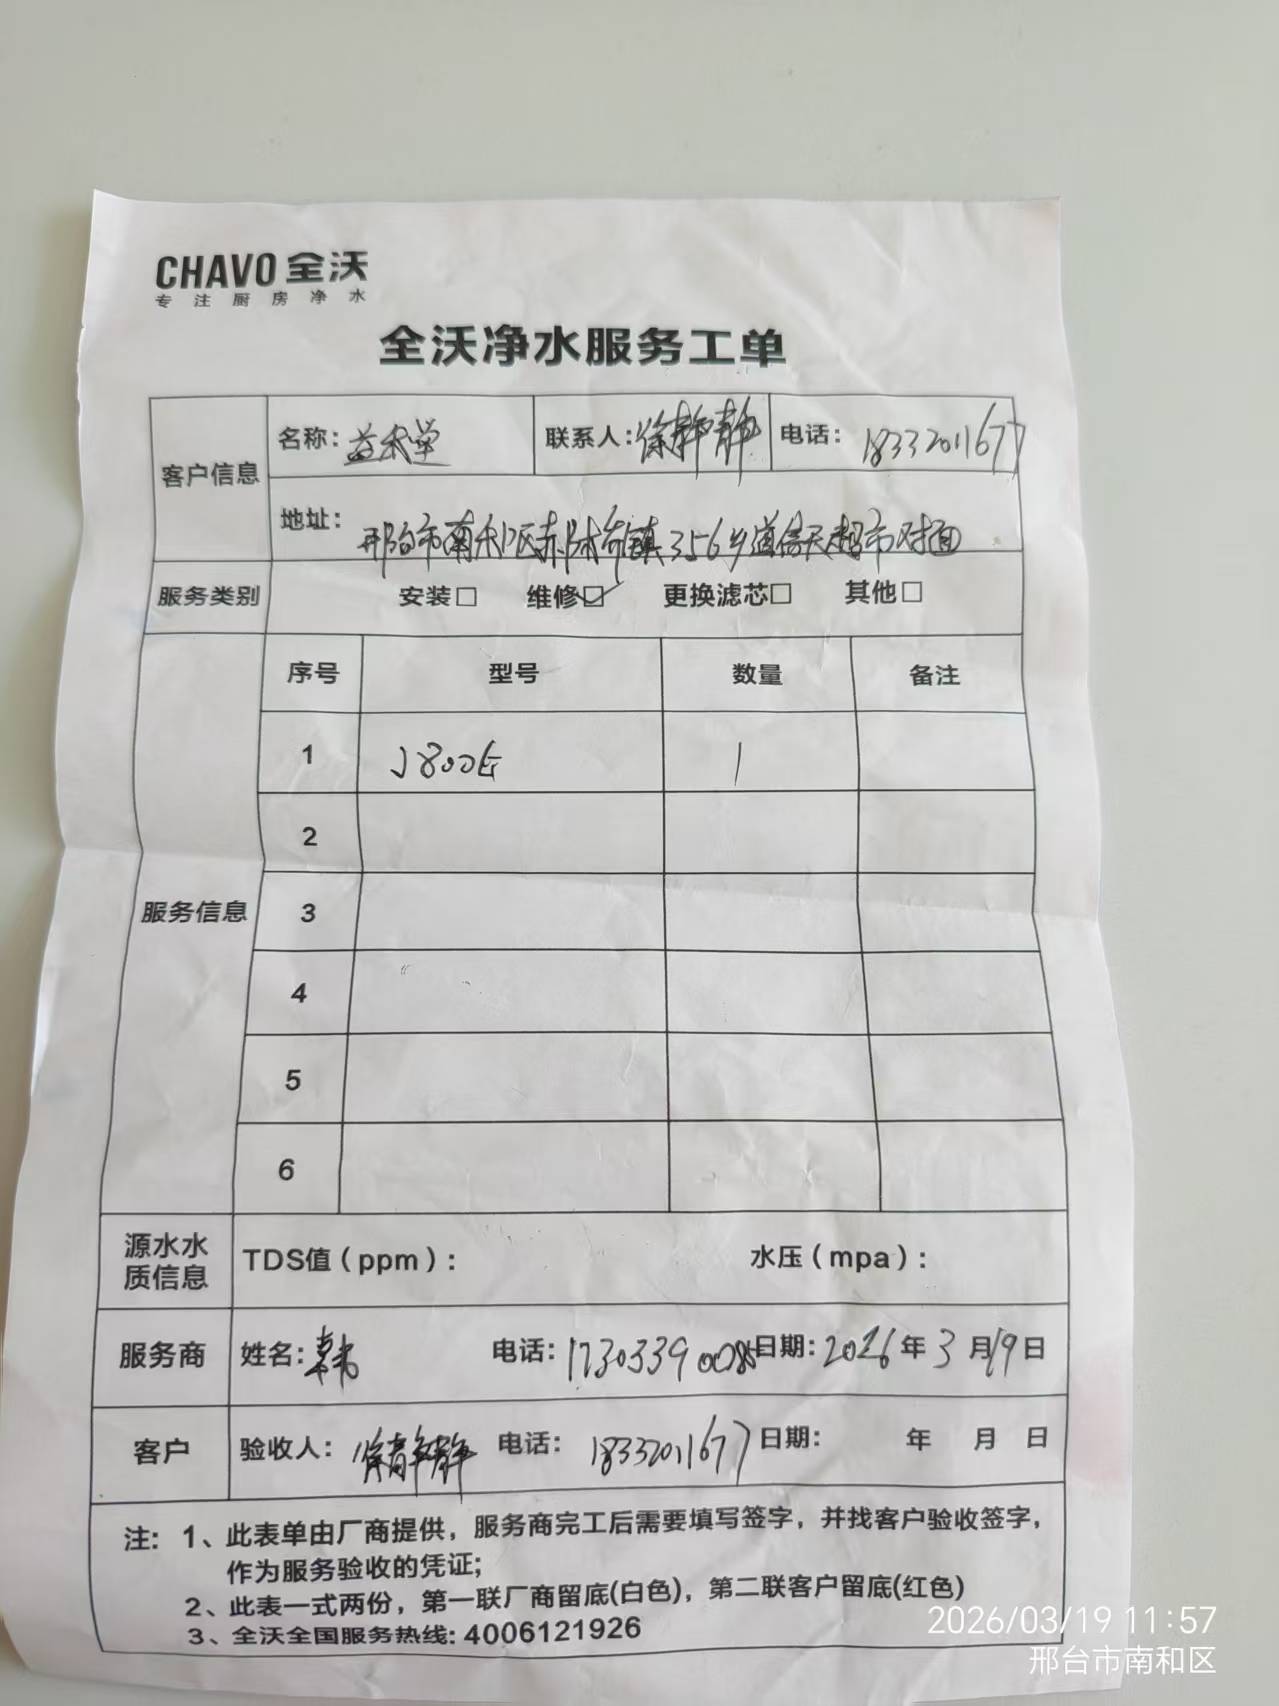 CHAVO 全沃
专注厨房净水
全沃净水服务工单
客户信息 名称：益禾堂 联系人：徐静静 电话：18332011677
地址：邢台市南和区郝桥镇356乡道信天超市对面
服务类别 安装□ 维修☑ 更换滤芯□ 其他□
服务信息 序号 型号 数量 备注
1 J800E 1
2
3
4
5
6
源水水质信息 TDS值（ppm）： 水压（mpa）：
服务商 姓名：韩 电话：17303390086 日期：2026年3月19日
客户 验收人：徐静静 电话：18332011677 日期： 年 月 日
注：1、此表单由厂商提供，服务商完工后需要填写签字，并找客户验收签字，
作为服务验收的凭证;
2、此表一式两份，第一联厂商留底(白色)，第二联客户留底(红色)
3、全沃全国服务热线：4006121926
2026/03/19 11:57
邢台市南和区